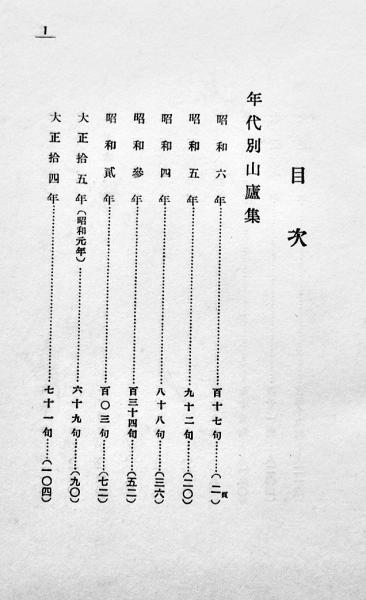 1
目次
年代別山廬集
昭和六年……百十七句……(二)頁
昭和五年……九十二句……(二〇)
昭和四年……八十八句……(三六)
昭和參年……百三十四句……(五二)
昭和貳年……百〇三句……(七二)
大正拾五年(昭和元年)……六十九句……(九〇)
大正拾四年……七十一句……(一〇四)